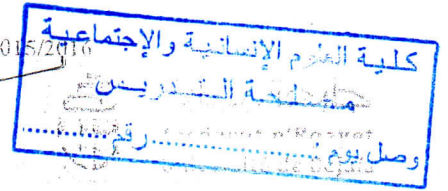 2015/2016
كلية العلوم الإنسانية والإجتماعية
مصلحة التدريس
وصل يوم:..................رقم:............